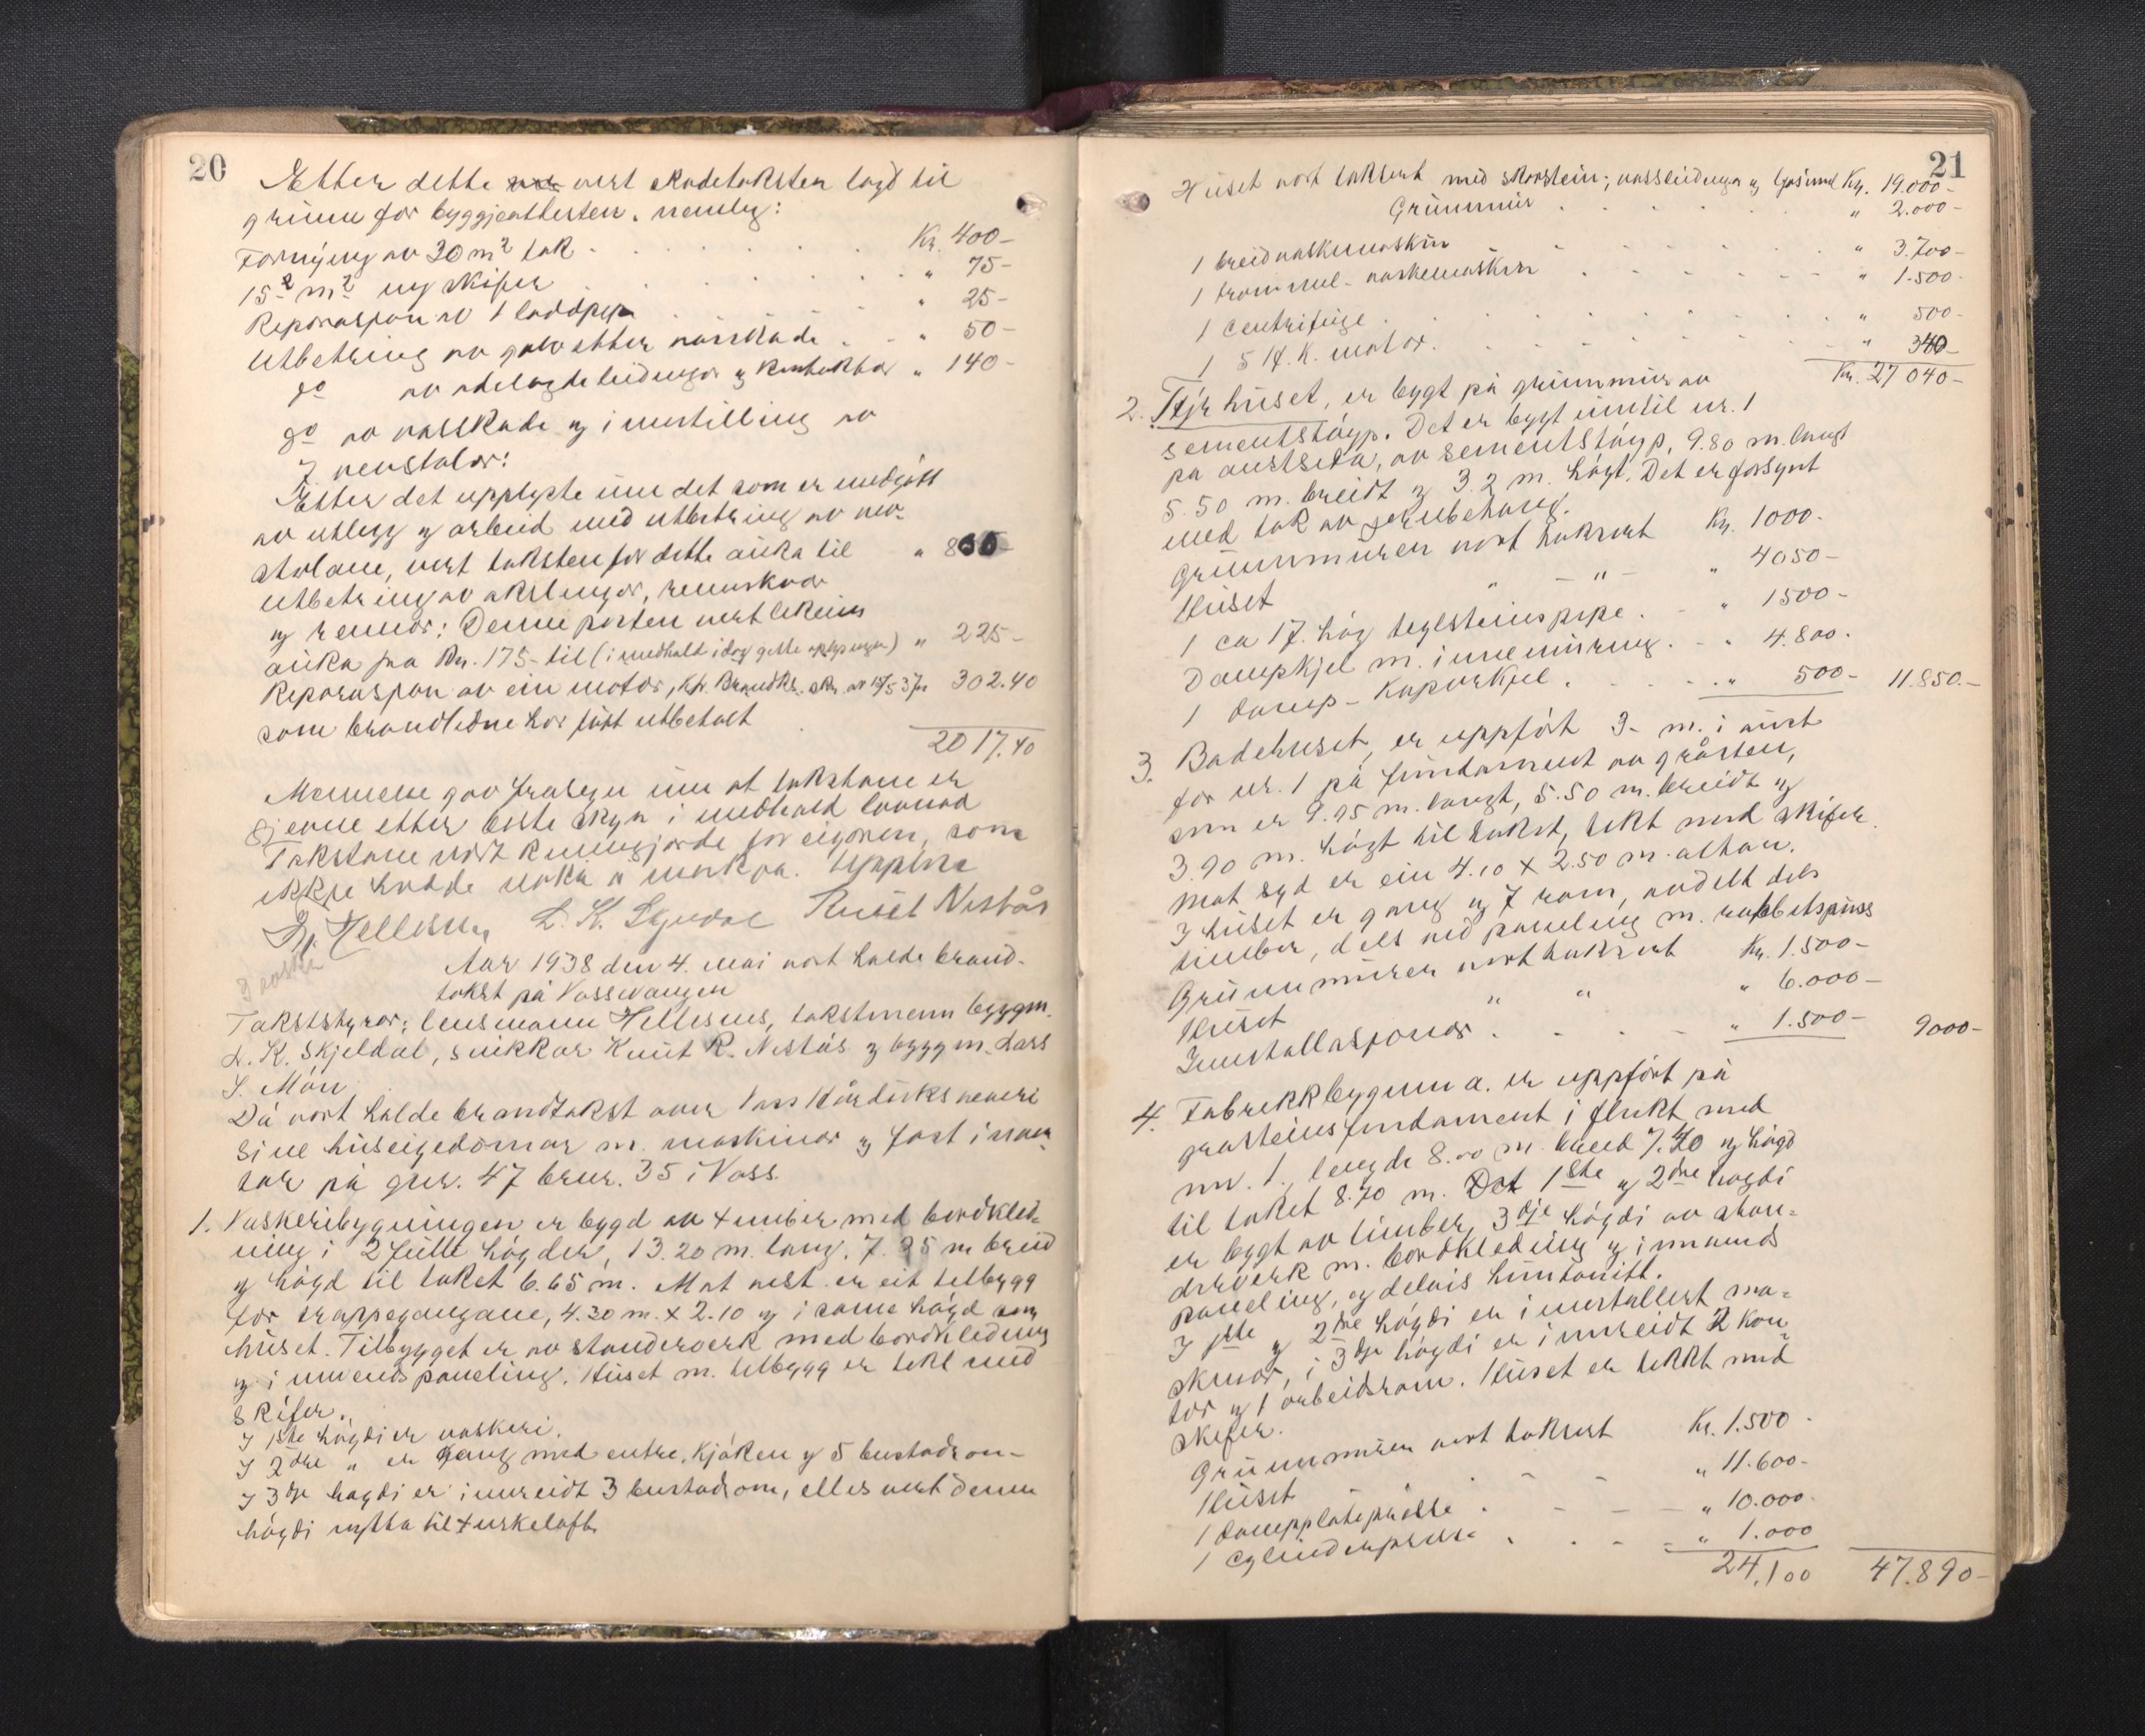 20
Etter dette vert skadetaksten lagd til
grunn for byggjeattesten, nemleg:
Fornying av 30 m² tak . . . . Kr. 400-
15² m² ny skifer . . . . " 75-
Reparasjon av 1 laddpipa . . " 25-
Utbetring av golv etter vasskade . . " 50-
do av ødelagde leidningar og kontaktar " 140-
do av vasskade og innstilling av
7 vevstolar:
Etter det upplyste um det som er medgått
av utlegg og arbeid med utbetring av vev-
stolane, vert taksten for dette auka til " 800-
Utbetring av akslingar, remskivor
og remmar: Denne posten vert likeins
auka fra Kr. 175- til (i medhald i dag gjette upplysningar) " 225-
Reparasjon av ein motor, 302.40
som brandledne har fått utbetalt
2017.40
Mennene gav frasegn um at takstane er
gjevne etter beste skyn i medhald lovnad
Takstane vart kunngjorde for eigaren, som
ikkje hadde noko å merka. Upplese
Hellesnes L. K. Skjeldal Knut Nestås
Avskr.
Aar 1938 den 4. mai vart halde brand-
takst på Vossevangen
Takststyrar: lensmann Hellesnes, takstmenn byggm.
L. K. Skjeldal, snikkar Knut R. Nestås og byggm. Lars
S. Møn
Då vart halde brandtakst over Voss Hårduksveveri
sine huseigedomar m. maskinar og fast inven-
tar på gnr. 47 brnr. 35 i Voss.
1. Vaskeribygningen er bygd av tømber med bordkled-
ning i 2 fulle høgder, 13.20 m. lang, 7.95 m breid
og høgd til taket 6.65 m. Mot vest er eit tilbygg
for trappegangane, 4.30 m. x 2.10 og i same høgd som
huset. Tilbygget er av standerverk med bordkledning
og innvends paneling. Huset m. tilbygg er tekt med
skifer.
I 1ste høgdi er vaskeri.
I 2dre " er gang med entre, kjøken og 5 bustadrom-
I 3dje høgdi er innreidt 3 bustadrom, elles vert denne
høgdi nytta til turkeloft.
21
Huset vart taksert med skorstein, vassleidningar og ljos med Kr. 19.000-
Grunnmur . . . . " 2.000-
1 breidvaskemaskin . . . " 3.700-
1 trommel-vaskemaskin . . . " 1.500-
1 centrifuge . . . . " 500-
1 5 H.K. motor . . . . " 340-
Kr. 27 040-
2. Fyrhuset, er bygt på grunnmur av
sementstøyp. Det er bygt inntil nr. 1
på austsida, av sementstøyp, 9.80 m. langt
5.50 m. breidt og 3.2 m. høgt. Det er forsynt
med tak av jernbetong.
Grunnmuren vart taksert Kr. 1000-
Huset " - " - " 4050-
1 ca 17. høg teglsteinspipe . - " 1500-
Dampkjel m. innemuring . - " 4.800-
1 damp-koparkjel . . . . " 500- 11.850.-
3. Badehuset, er uppført 3- m. i aust
for nr. 1 på fundament av gråstein,
som er 9.95 m. langt, 5.50 m. breidt og
3.90 m. høgt til takst, tekt med skifer.
mot syd er ein 4.10 x 2.50 m. altan.
I huset er gang og 7 rom, avdelt dels
timber, dels ved paneling m. rabbetspuss
Grunnmuren vart taksert Kr. 1.500-
Huset " " " 6.000-
Innstallasjonar . . - - " 1.500- 9000-
4. Fabrikkbygnina. er uppført på
grasteinsfundament i flukt med
nr. 1, lengde 8.00 m. breid 7.40 og høgd
til taket 8.70 m. Det 1ste og 2dre høgdi
er bygt av timber, 3dje høgdi av stan-
derverk m. bordkledning og innvends
paneling, og delvis huntonitt.
I 1ste og 2dre høgdi er innstallert ma-
skinor, i 3dje høgdi er innreidt 2 kon-
tor og 1 arbeidsrom. Huset er tekkt med
skifer.
Grunnmuren vart taksert Kr. 1.500-
Huset " 11.600-
1 dampplatepresse . - - - " 10.000-
1 cylinderpresse . . - - " 1.000
24.100 47.890-